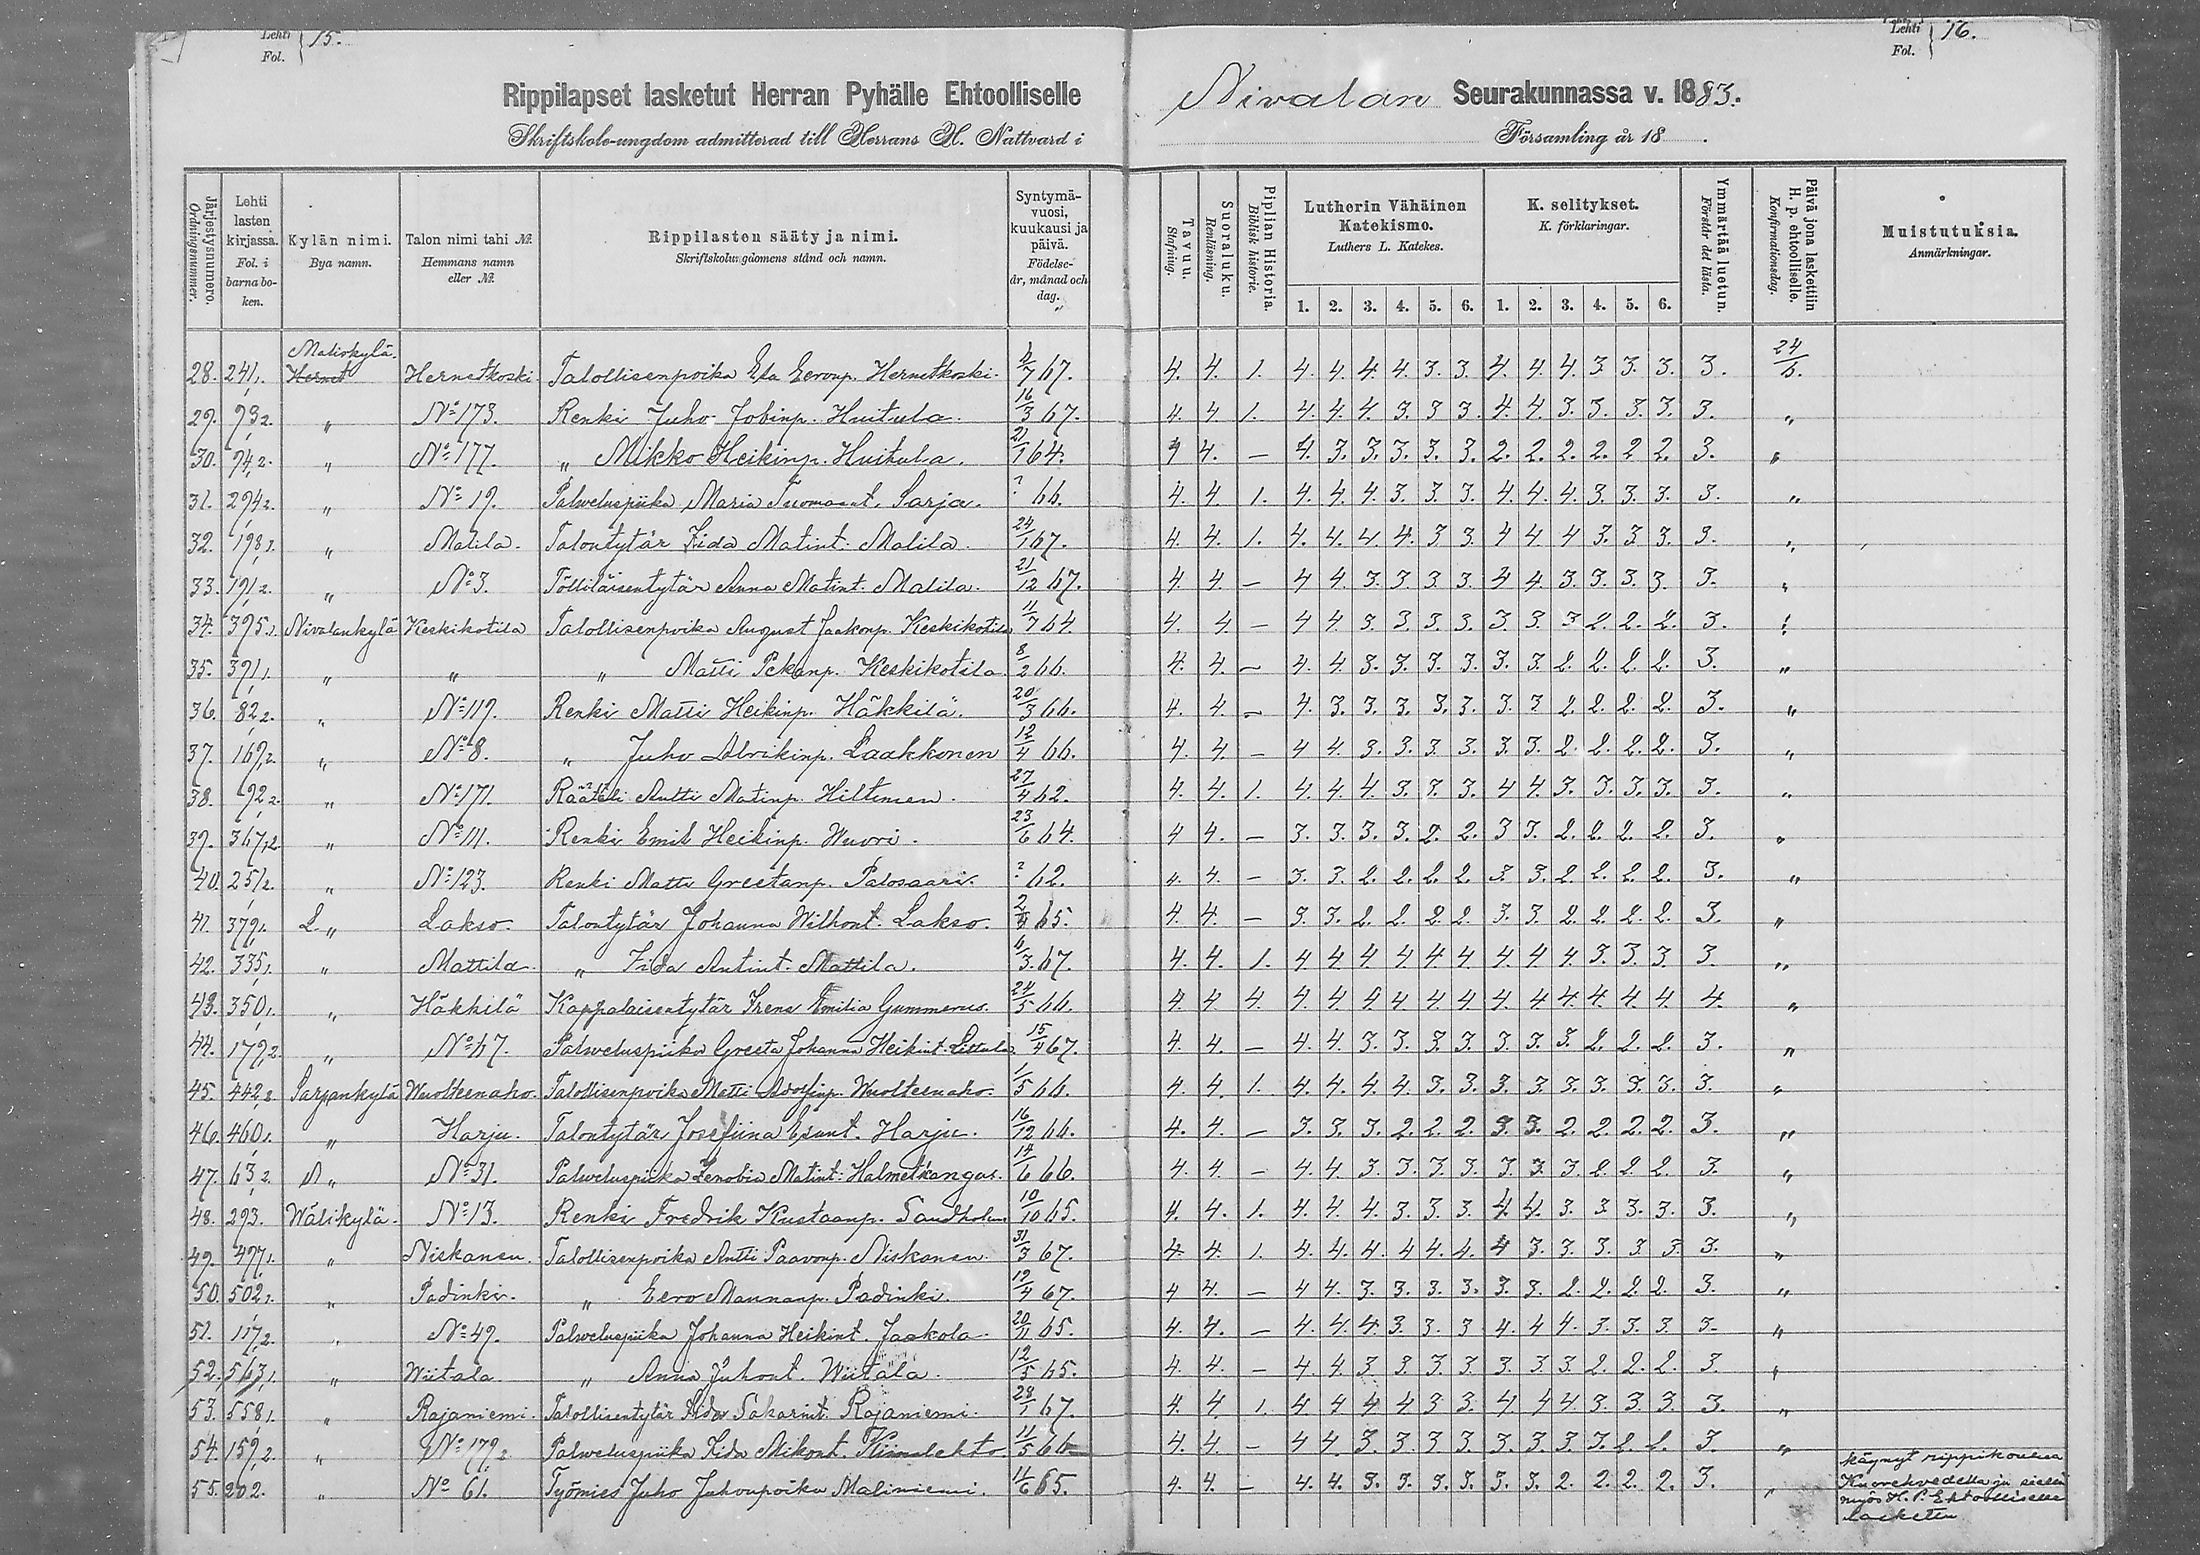 Lehti Fol. } 15.
Lehti Fol. } 16.
Rippilapset lasketut Herran Pyhälle Ehtoolliselle Nivalan Seurakunnassa v. 1883.
Skriftskole-ungdom admitterad till Herrans H. Nattvard i Församling år 18 .
Järjestysnumero. Ordningsnummer.
Lehti lasten kirjassa. Fol. i barnaboken.
Kylän nimi. Bya namn.
Talon nimi tahi №. Hemmans namn eller №.
Rippilasten sääty ja nimi. Skriftskolungdomens stånd och namn.
Syntymä-vuosi, kuukausi ja päivä. Födelse-år, månad och dag.
Tavuu. Stafning.
Suoraluku. Renläsning.
Piplian Historia. Biblisk historie.
Lutherin Vähäinen Katekismo. Luthers L. Katekes.
K. selitykset. K. förklaringar.
Ymmärtää luetun. Förstår det lästa.
Päivä jona laskettiin H. p. ehtoolliselle. Konfirmationsdag.
Muistutuksia. Anmärkningar.
1. 2. 3. 4. 5. 6. 1. 2. 3. 4. 5. 6.
Maliskylä.
28. 241,1. Hernet Hernetkoski. Talollisenpoika Esa Eeronp. Hernetkoski. 6/7 67. 4. 4. 1. 4. 4. 4. 4. 3. 3. 4. 4. 4. 3. 3. 3. 3. 24/6.
29. 93,2. " No 173. Renki Juho Jobinp. Huitula. 16/3 67. 4. 4 1. 4. 4. 4. 3. 3 3. 4. 4. 3. 3. 3. 3. 3. "
30. 74,2. " No 177. " Mikko Heikinp. Huitula. 21/1 64. 4 4. – 4. 3. 3. 3. 3. 3. 2. 2. 2. 2. 2 2. 3. "
31. 294,2. " No 19. Palveluspiika Maria Tuomaant. Sarja. ? 66. 4. 4 1. 4. 4. 4. 3. 3. 3. 4. 4. 4. 3 3. 3. 3. "
32. 198,1. " Malila. Talontytär Iida Matint. Malila. 24/1 67. 4. 4. 1. 4. 4. 4. 4. 3 3. 4 4 4 3. 3 3. 3. "
33. 191,2. " No 3. Tölliläisentytär Anna Matint. Malila. 21/12 67. 4. 4 – 4 4. 3. 3. 3. 3. 4 4. 3. 3. 3. 3. 3. "
34. 395,1. Nivalankylä Keskikotila Talollisenpoika August Jaakonp. Keskikotila 11/7 64. 4. 4. – 4 4. 3. 3. 3. 3. 3. 3. 3 2. 2. 2. 3. "
35. 391,1. " " " Matti Pekanp. Keskikotila. 8/2 66. 4. 4. – 4. 4 3. 3. 3. 3. 3. 3. 2. 2. 2. 2. 3. "
36. 82,2. " No 119. Renki Matti Heikinp. Häkkilä. 20/3 66. 4. 4. – 4. 3. 3. 3. 3. 3. 3. 3 2. 2. 2. 2. 3. "
37. 169,2. " No 8. " Juho Ulrikinp. Laakkonen 12/4 66. 4. 4. – 4 4. 3. 3. 3 3. 3. 3. 2. 2. 2. 2. 3. "
38. 92,2. " No 171. Räätäli Antti Matinp. Hiltunen. 27/4 62. 4. 4. 1. 4. 4. 4. 3. 3. 3. 4 4. 3. 3. 3. 3. 3. "
39. 367,2. " No 111. Renki Emil Heikinp. Wuori. 23/6 64. 4 4. – 3. 3. 3. 3. 2. 2. 3 3. 2. 2. 2. 2. 3. "
40. 251,2. " No 123. Renki Matti Greetanp. Palosaari. ? 62. 4. 4. – 3. 3. 2. 2. 2. 2. 3. 3. 2. 2. 2. 2. 3. "
41. 379,1. L. " Lakso. Talontytär Johanna Wilhont. Lakso. 65. 4. 4. – 3. 3. 2. 2. 2. 2. 3. 3. 2. 2. 2. 2. 3. "
42. 335,1. " Mattila. " Iida Antint. Mattila. 6/3 67. 4. 4. 1. 4 4 4 4 4 4 4. 4. 4. 3. 3. 3 3. "
43. 350,1. " Häkkilä Kappalaisentytär Irene Emilia Gummerus. 24/5 66. 4. 4 4. 4. 4. 4 4 4 4 4. 4 4. 4. 4. 4. 4. "
44. 179,2. " No 47. Palveluspiika Greeta Johanna Heikint. 15/4 67. 4. 4. – 4. 4. 3. 3. 3. 3. 3. 3. 3. 2. 2. 2. 3. "
45. 442, Sarjankylä Wuolteenaho. Talollisenpoika Matti Adolfinp. Wuolteenaho. 1/5 66. 4. 4 1. 4. 4. 4. 4. 3. 3. 3. 3. 3. 3. 3. 3. 3. "
46. 460,1. " Harju. Talontytär Josefiina Esant. Harju. 16/12 66. 4. 4. – 3. 3. 3. 2. 2. 2. 3. 3. 2. 2. 2. 2. 3. "
47. 63,2. " No 31. Palveluspiika Zenobia Matint. Halmetkangas. 14/6 66. 4. 4. – 4. 4. 3. 3. 3. 3. 3. 3. 3. 2. 2. 2. 3. "
48. 293. Wälikylä. No 13. Renki Fredrik Kustaanp. Sandholm 10/10 65. 4. 4. 1. 4. 4. 4. 3. 3. 3. 4. 4. 3. 3. 3. 3. 3. "
49. 497,1. " Niskanen. Talollisenpoika Antti Paavonp. Niskanen. 31/3 67. 4. 4. 1. 4. 4. 4. 4 4. 4. 4 3. 3. 3. 3. 3. 3. "
50. 502,1. " Padinki. " Eero Mannanp. Padinki. 19/4 67. 4 4. – 4 4. 3. 3. 3. 3. 3. 3. 2. 2. 2. 2. 3. "
51. 117,2. " No 49. Palveluspiika Johanna Heikint. Jaakola. 20/11 65. 4. 4. – 4. 4. 4. 3. 3. 3 4. 4. 4. 3. 3. 3. 3. "
52. 563,1. " Wiitala " Anna Juhont. Wiitala. 12/5 65. 4. 4. – 4. 4. 3 3. 3. 3 3. 3 3. 2. 2. 2. 3. "
53. 558,1. " Rajaniemi. Talollisentytär Iida Sakarint. Rajaniemi. 28/1 67. 4. 4. 1. 4 4 4 4 3 3. 4. 4 4 3. 3. 3 3. "
54. 159,2. " No 179,2 Palveluspiika Iida Mikont. 11/5 66 4. 4. – 4 4. 3. 3. 3 3. 3. 3. 3. 3. 2. 2. 3. "
55. 202. " No 61. Työmies Juho Juhonpoika Maliniemi. 11/6 65. 4. 4. – 4. 4. 3. 3. 3. 3. 3. 3. 2. 2. 2. 2. 3. "
käynyt rippikoulua
Kuorevedellä ja siellä
myös H. P. Ehtoolliselle
laskettu